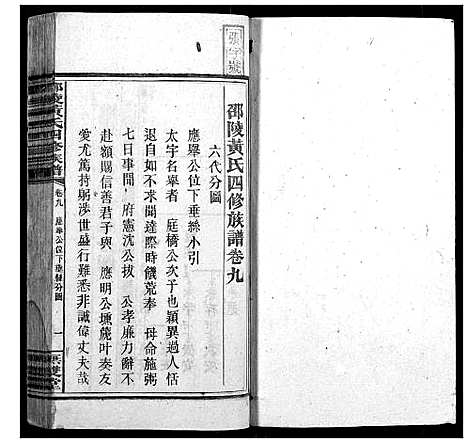 張字號
邵陵黃氏四修族譜卷九
六代分圖
應舉公位下垂絲小引
太字名舉者 庭橋公次子也穎異過人恬
退自如不求聞達際時饑荒奉 母命施粥
七日動以萬計 府憲沈公拔 公孝廉力辭不
赴額賜信善君子與 應明公壎箎叶奏友
愛尤篤持躬涉世盛行難悉非誠偉丈夫哉
邵陵黃氏四修族譜
卷九
應舉公位下垂絲分圖
一